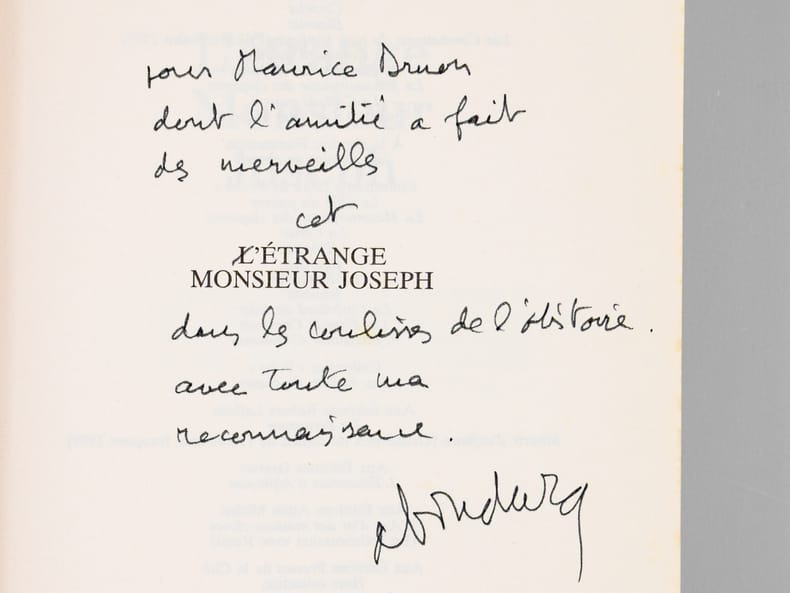 pour Maurice Druon
dont l'amitié a fait
des merveilles
cet
L'ÉTRANGE
MONSIEUR JOSEPH
dans les coulisses de l'Histoire.
avec toute ma
reconnaissance.